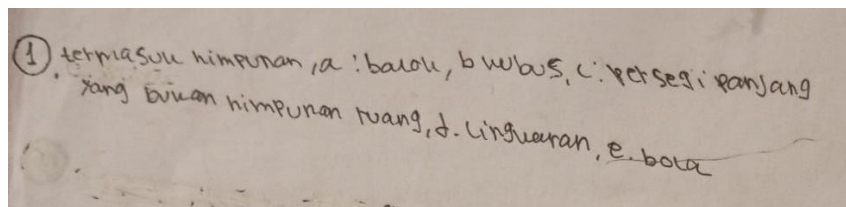 ① termasuk himpunan, a : balok, b kubus, c : persegi panjang
yang bukan himpunan ruang, d. lingkaran, e. bola